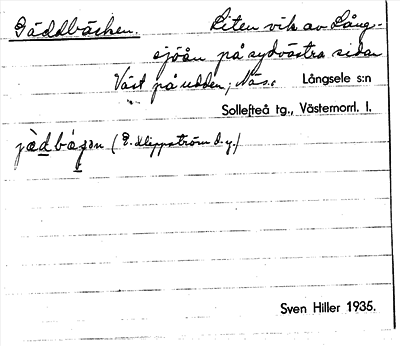 Gäddbäcken. Liten vik av Lång-
sjöån på sydvästra sidan
Väst på udden, Näs. Långsele s:n
Sollefteå tg., Västernorrl. l.
jädbäɟen (E. Klippström d.y.)
Sven Hiller 1935.